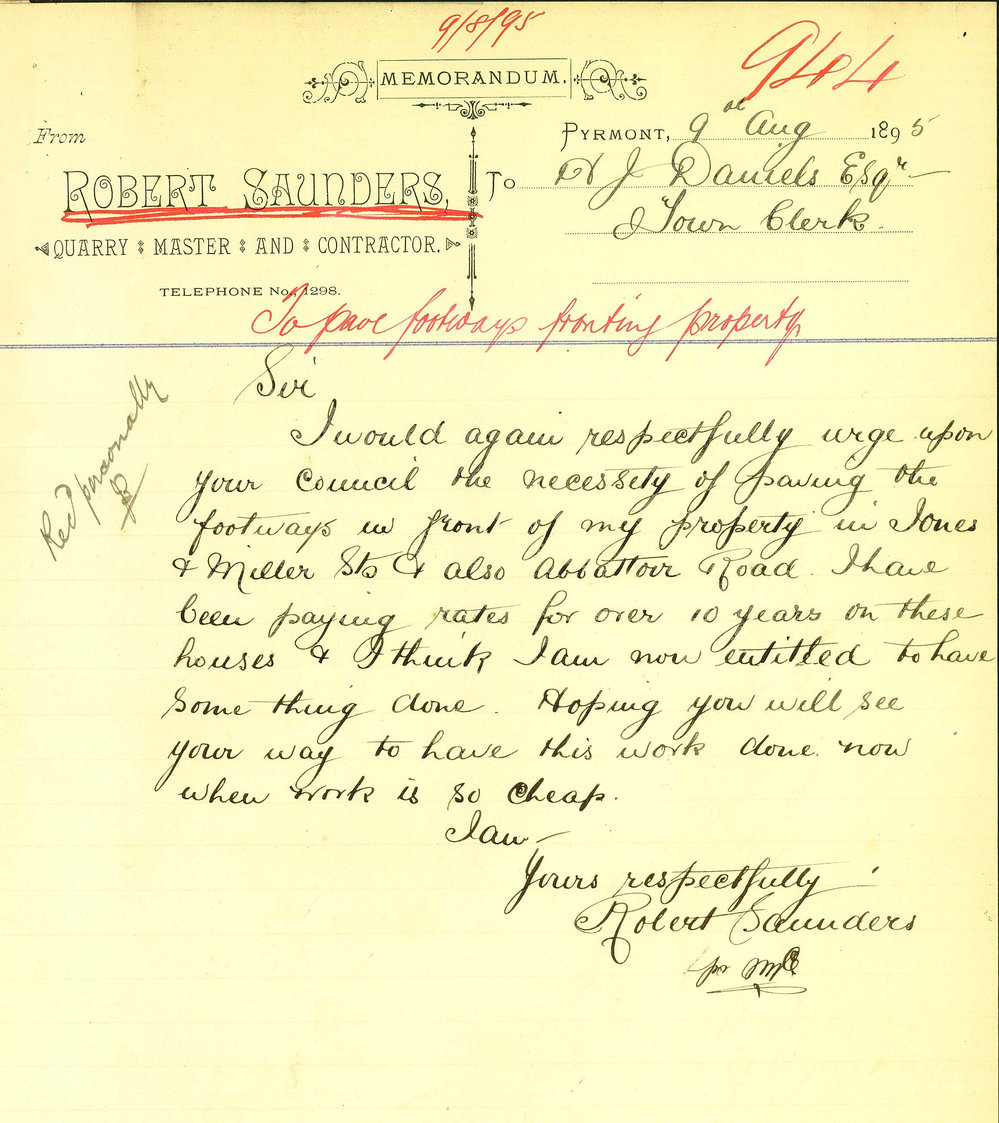 9/8/95
MEMORANDUM.
9404
From
PYRMONT, 9th Aug 1895
ROBERT SAUNDERS, To
H J Daniels Esqr
Town Clerk.
QUARRY MASTER AND CONTRACTOR.
TELEPHONE No. 1298.
To pave footways fronting property
Sir
Recd personally
I would again respectfully urge upon
your Council the necessity of paving the
footways in front of my property in Jones
& Miller Sts & also Abbattoir Road. I have
been paying rates for over 10 years on these
houses & I think I am now entitled to have
some thing done. Hoping you will see
your way to have this work done now
when work is so cheap.
I am
Yours respectfully
Robert Saunders
pr